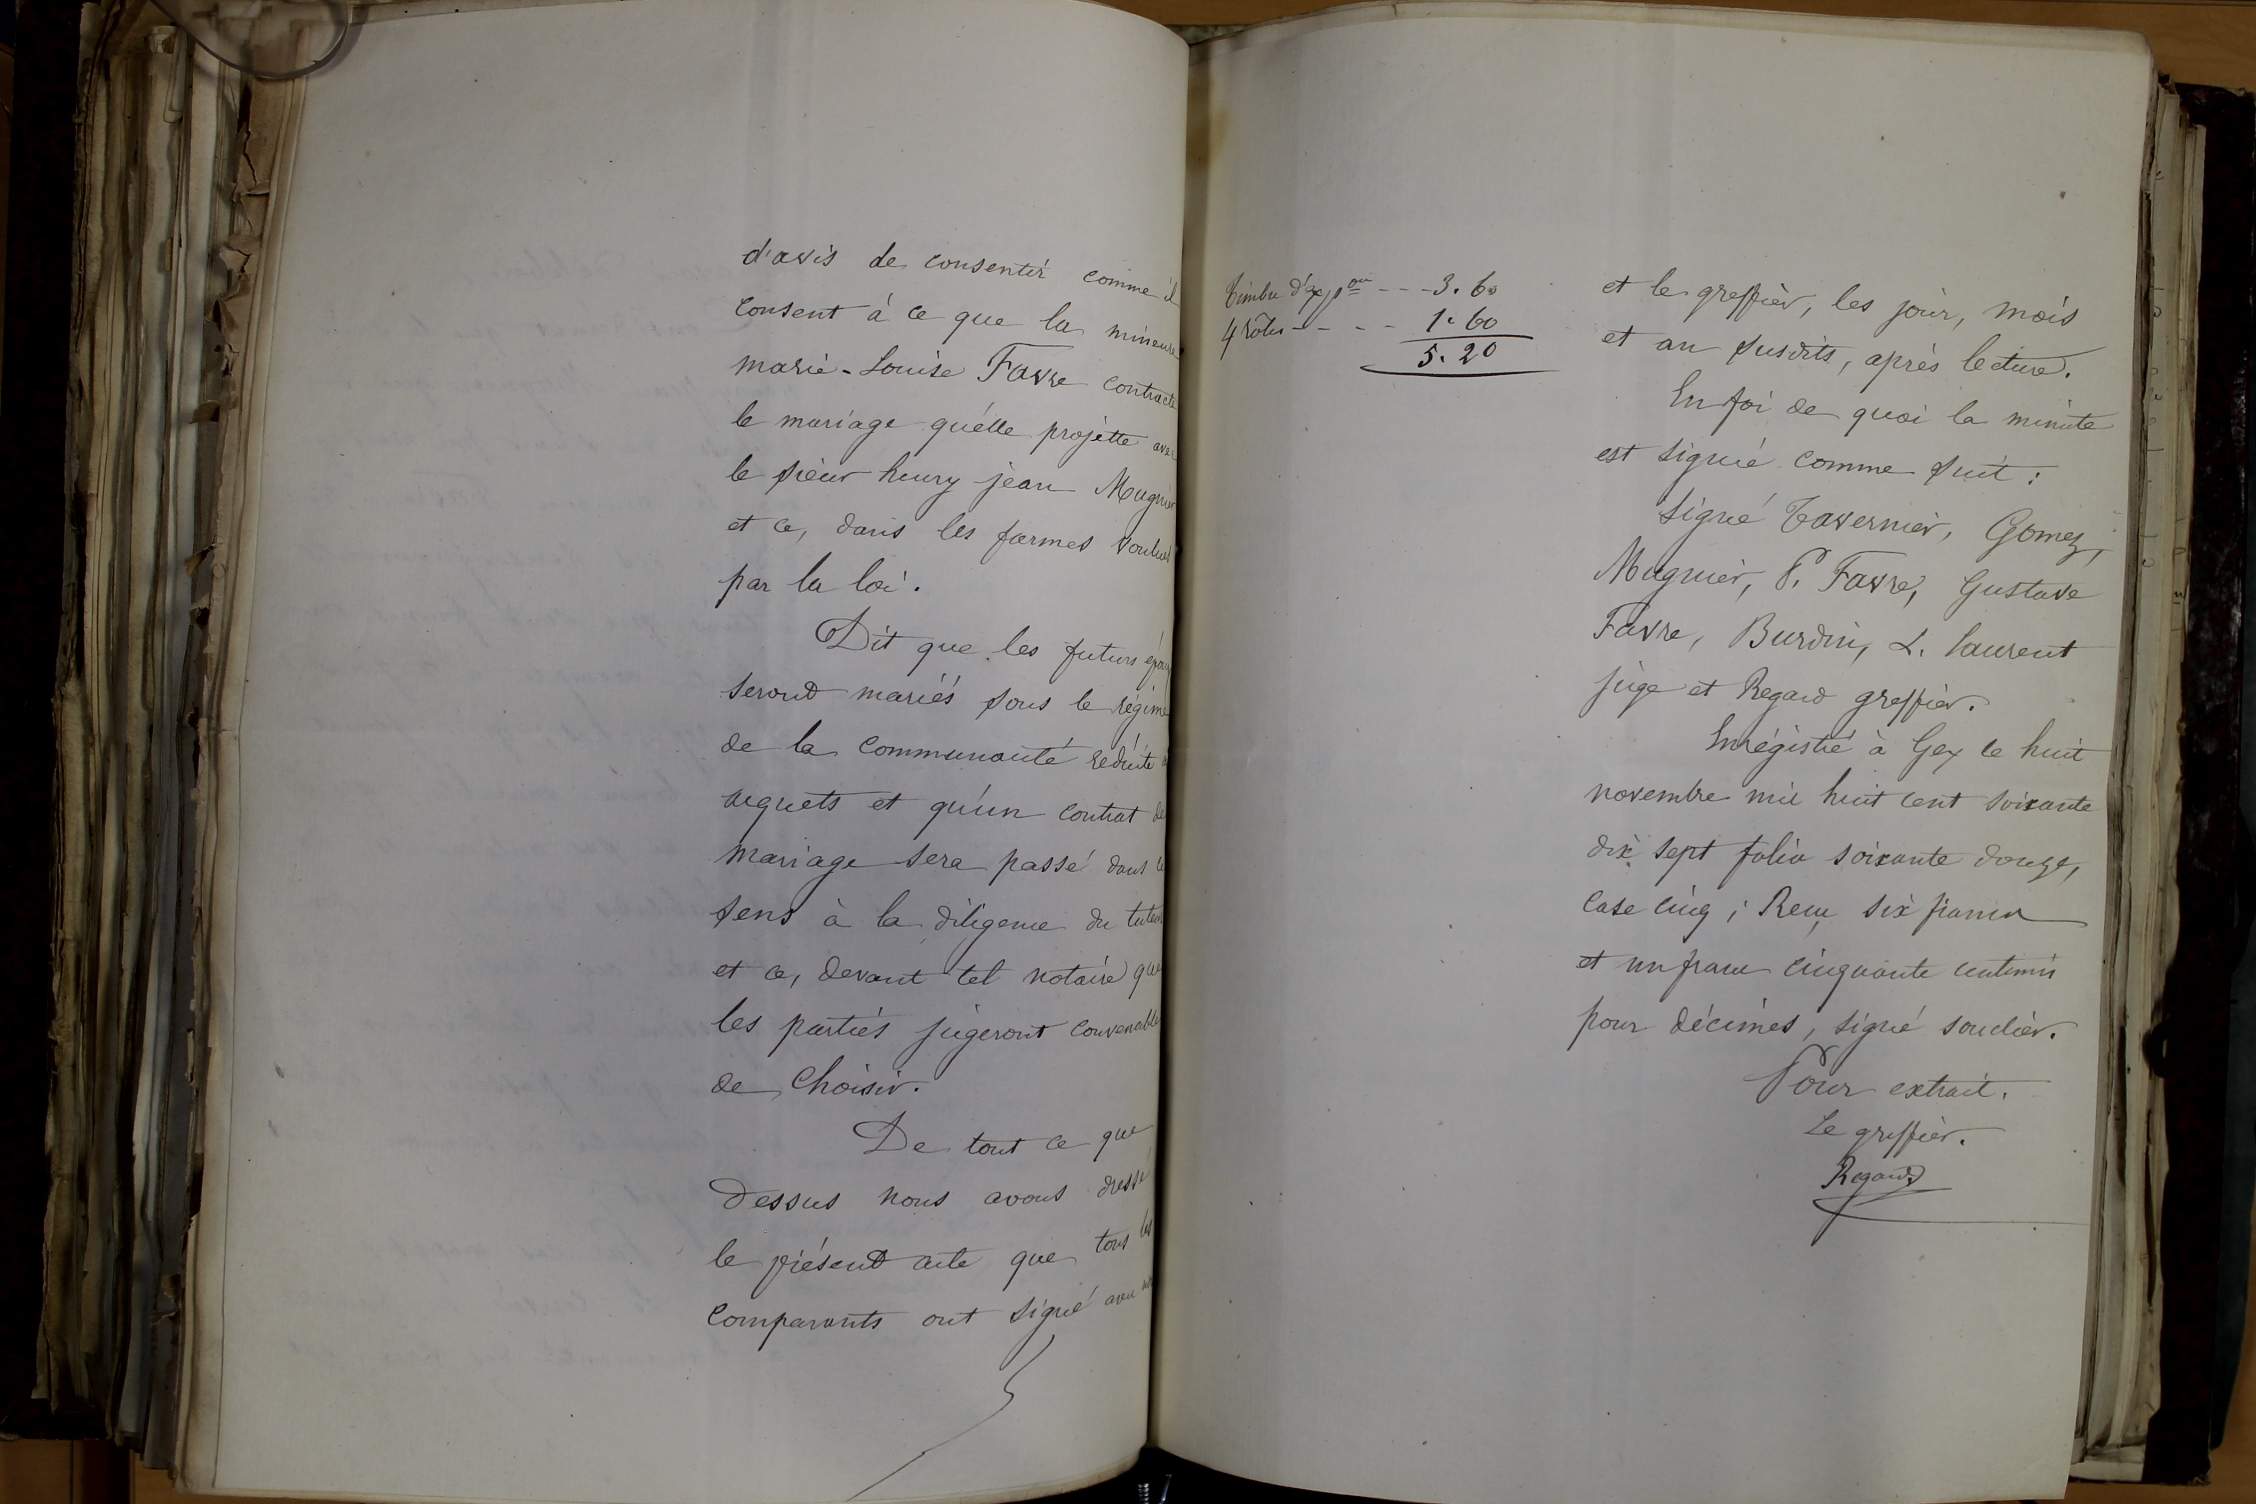 d'avis de consentir comme il
consent à ce que la mineure
marie-Louise Favre contracte
le mariage qu'elle projette avec
le sieur henry jean Mugnier
et ce, dans les formes voulues
par la loi.
Dit que les futurs époux
seront mariés sous le régime
de la communauté réduite
acquets et qu'un contrat de
mariage sera passé dans ce
sens à la diligence du tuteur
et ce, devant tel notaire que
les parties jugeront convenable
de Choisir.
De tout ce que
dessus nous avons dressé
le présent acte que tous les
comparants ont signé avec
timbre d'expon --- 3.60
4 rôles ---- 1.60
5.20
et le greffier, les jour, mois
et an susdits, après lecture.
En foi de quoi la minute
est signée comme suit :
signé Tavernier, Gomez,
Mugnier, P. Favre, Gustave
Favre, Burdin, L. laurent
juge et Regard greffier.
Enrégistré à Gex le huit
novembre mil huit cent soixante
dix sept folio soixante douze,
case cinq ; Reçu six francs
et un franc cinquante centimes
pour décimes, signé soudier.
Pour extrait.
Le greffier.
Regard